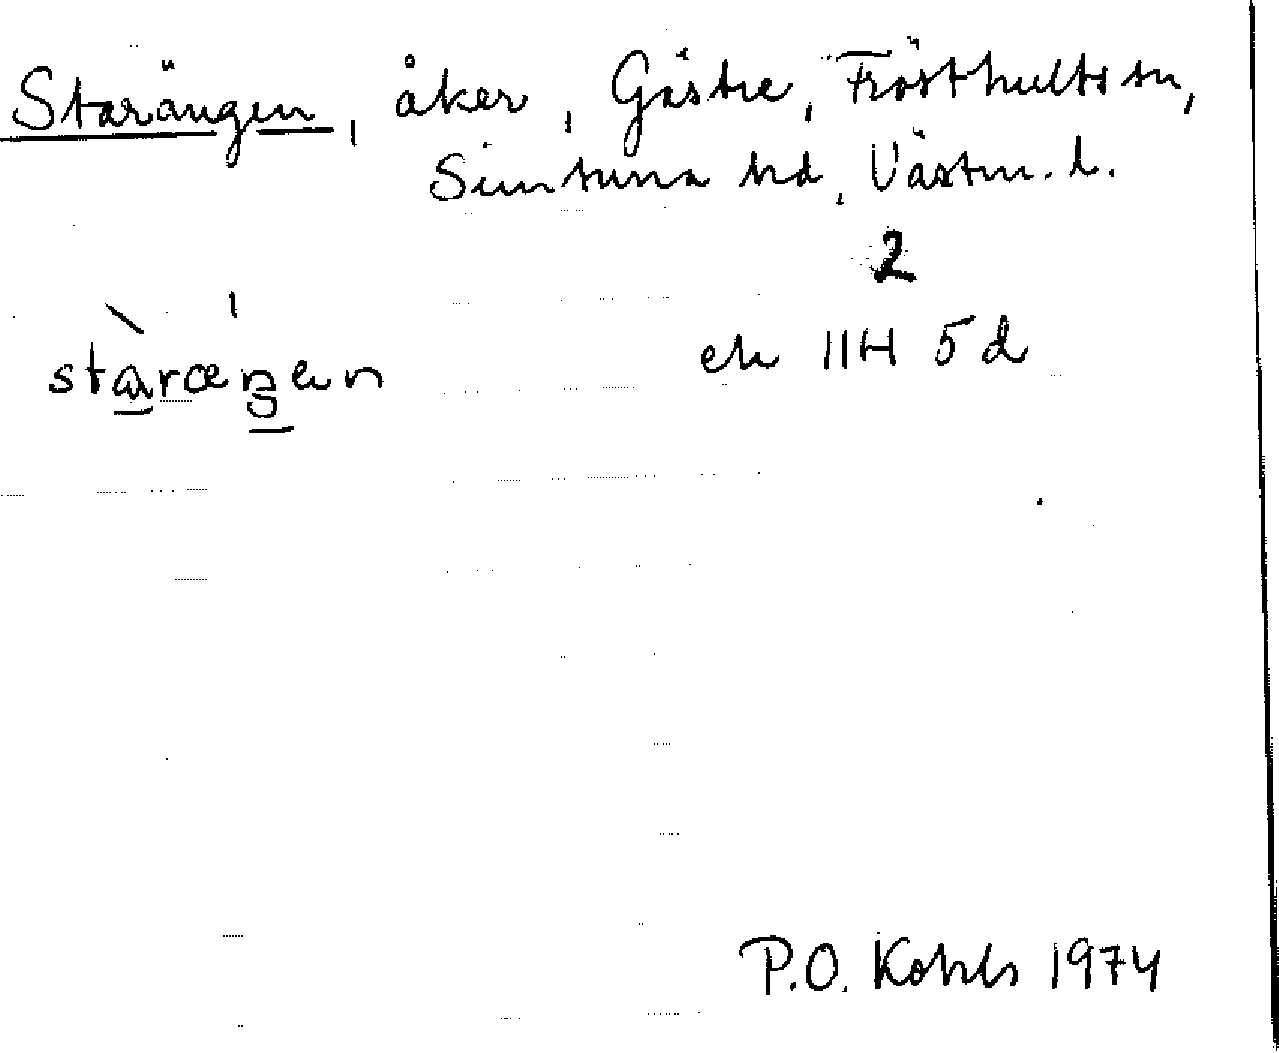 Starängen, åker, Gästre, Frösthults sn,
Simtuna hd, Västm. l.
2
ek 11H 5d
P.O. Kohls 1974